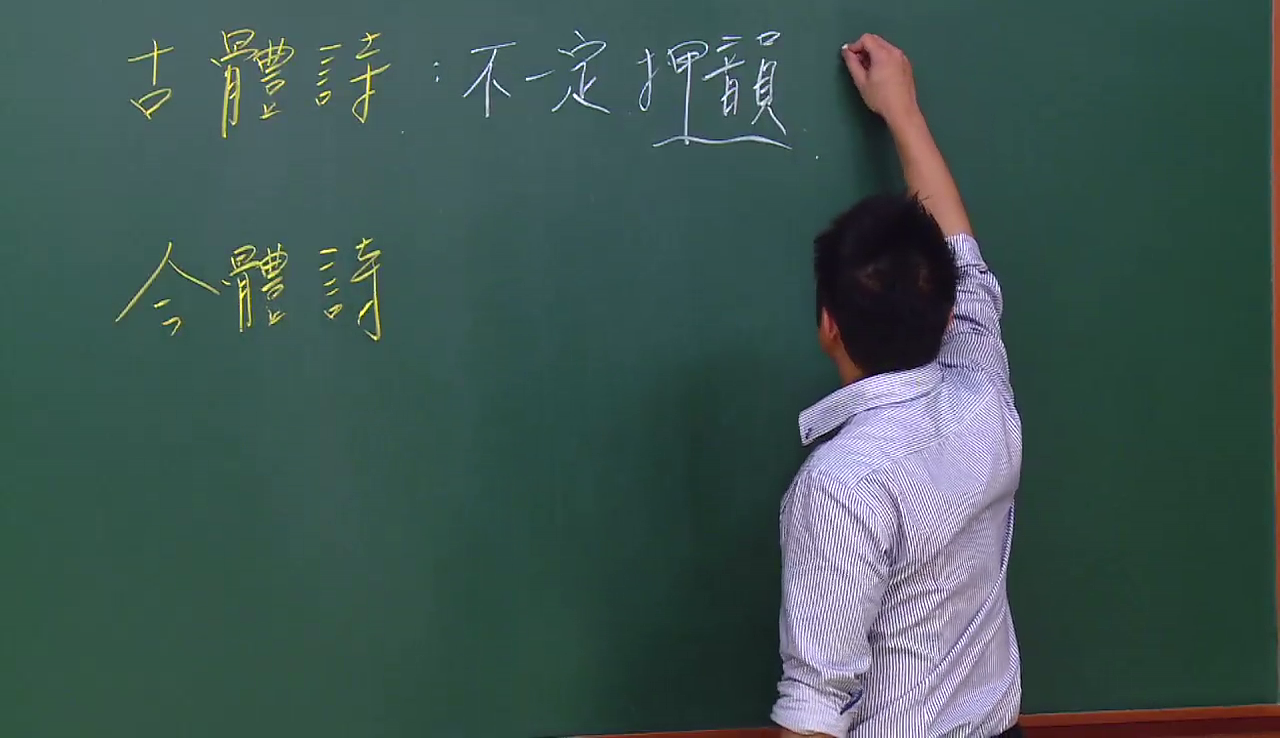 古體詩：不一定押韻
今體詩